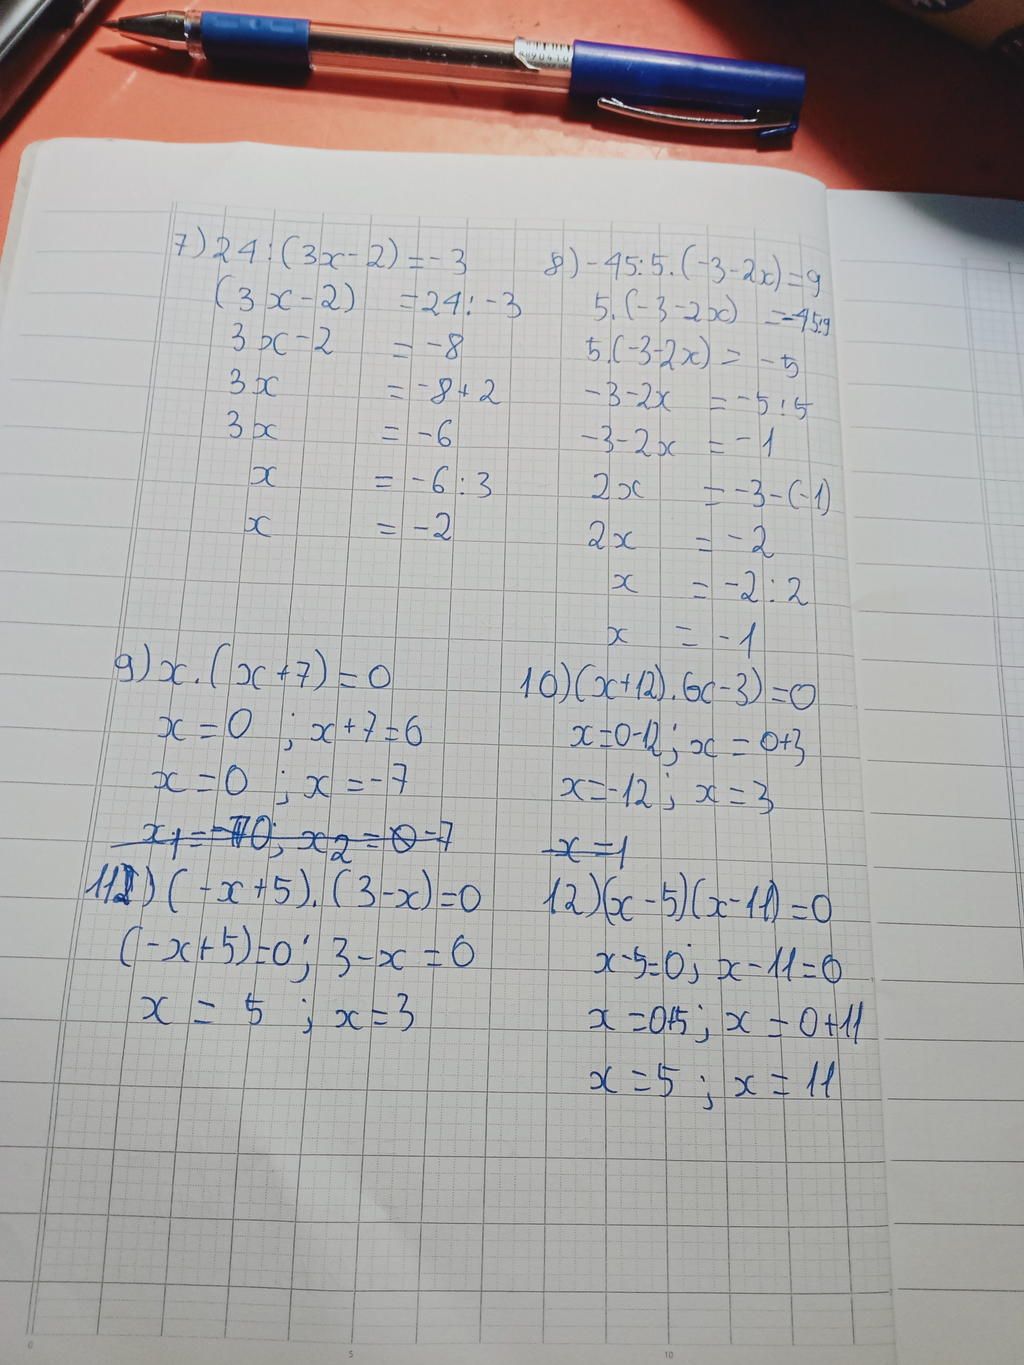 7) 24 : (3x - 2) = -3
(3x - 2) = 24 : -3
3x - 2 = -8
3x = -8 + 2
3x = -6
x = -6 : 3
x = -2
8) -45 : 5 . (-3 - 2x) = 9
5. (-3 - 2x) = -45:9
5.(-3 - 2x) = -5
-3 - 2x = -5 : 5
-3 - 2x = -1
2x = -3 - (-1)
2x = -2
x = -2 : 2
x = -1
9) x . (x + 7) = 0
x = 0 ; x + 7 = 0
x = 0 ; x = -7
x1 = 0; x2 = 0 - 7
10) (x + 12) . (x - 3) = 0
x = 0 - 12 ; x = 0 + 3
x = -12 ; x = 3
x = 1
11) (-x + 5) . (3 - x) = 0
(-x + 5) = 0 ; 3 - x = 0
x = 5 ; x = 3
12) (x - 5)(x - 11) = 0
x - 5 = 0 ; x - 11 = 0
x = 0 + 5 ; x = 0 + 11
x = 5 ; x = 11
0 5 10